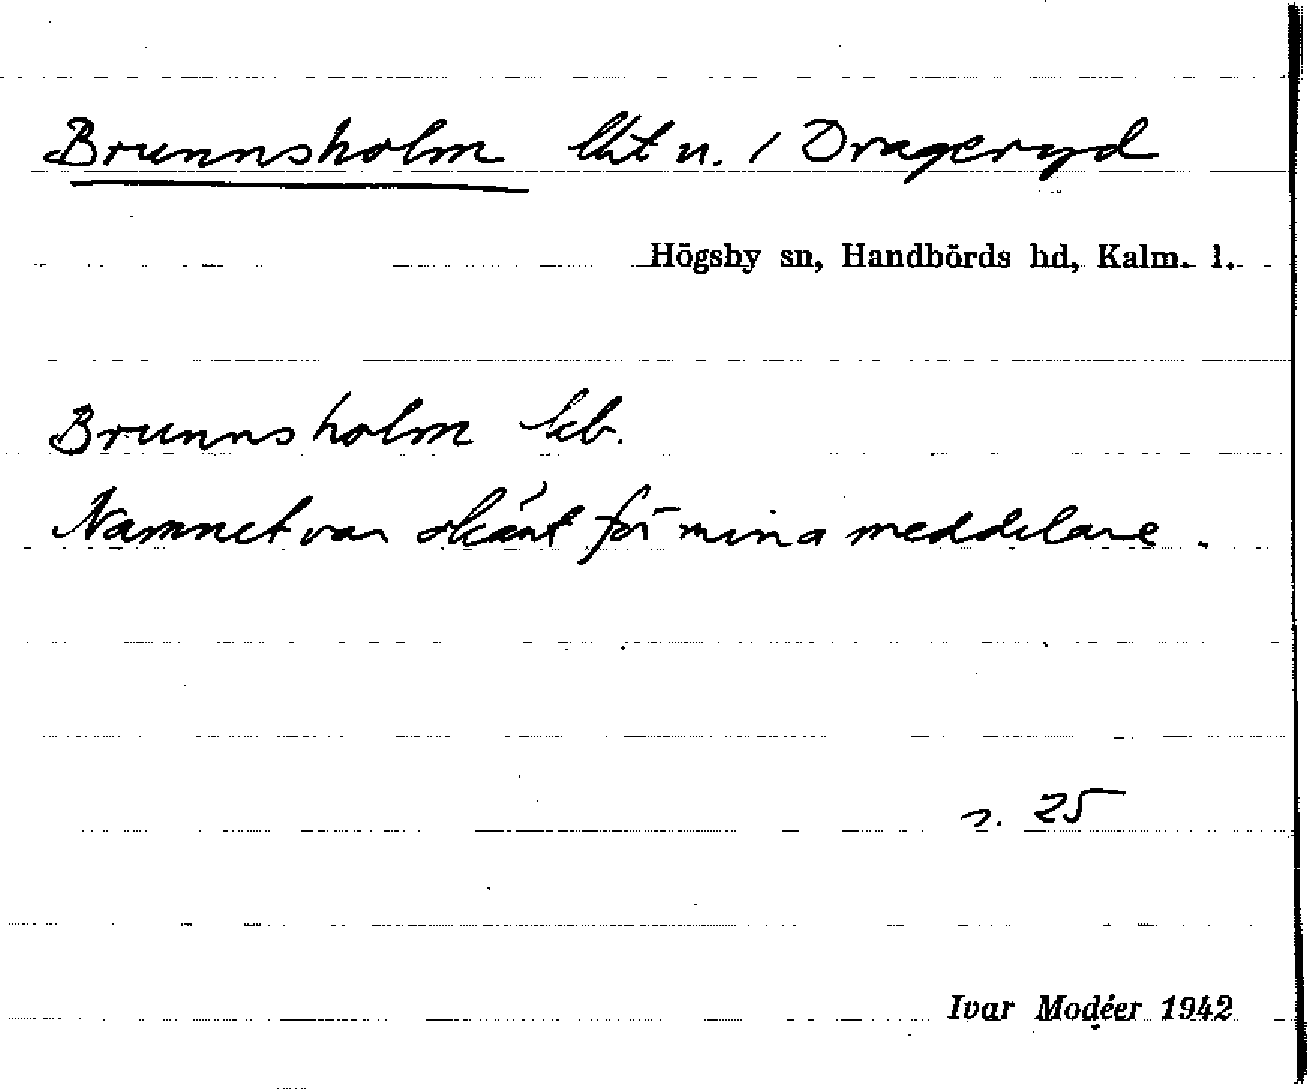 Brunnsholm lht u. / Drageryd
Högsby sn, Handbörds hd, Kalm. l.
Brunnsholm kb.
Namnet var okänt för mina meddelare.
s. 25
Ivar Modéer 1942